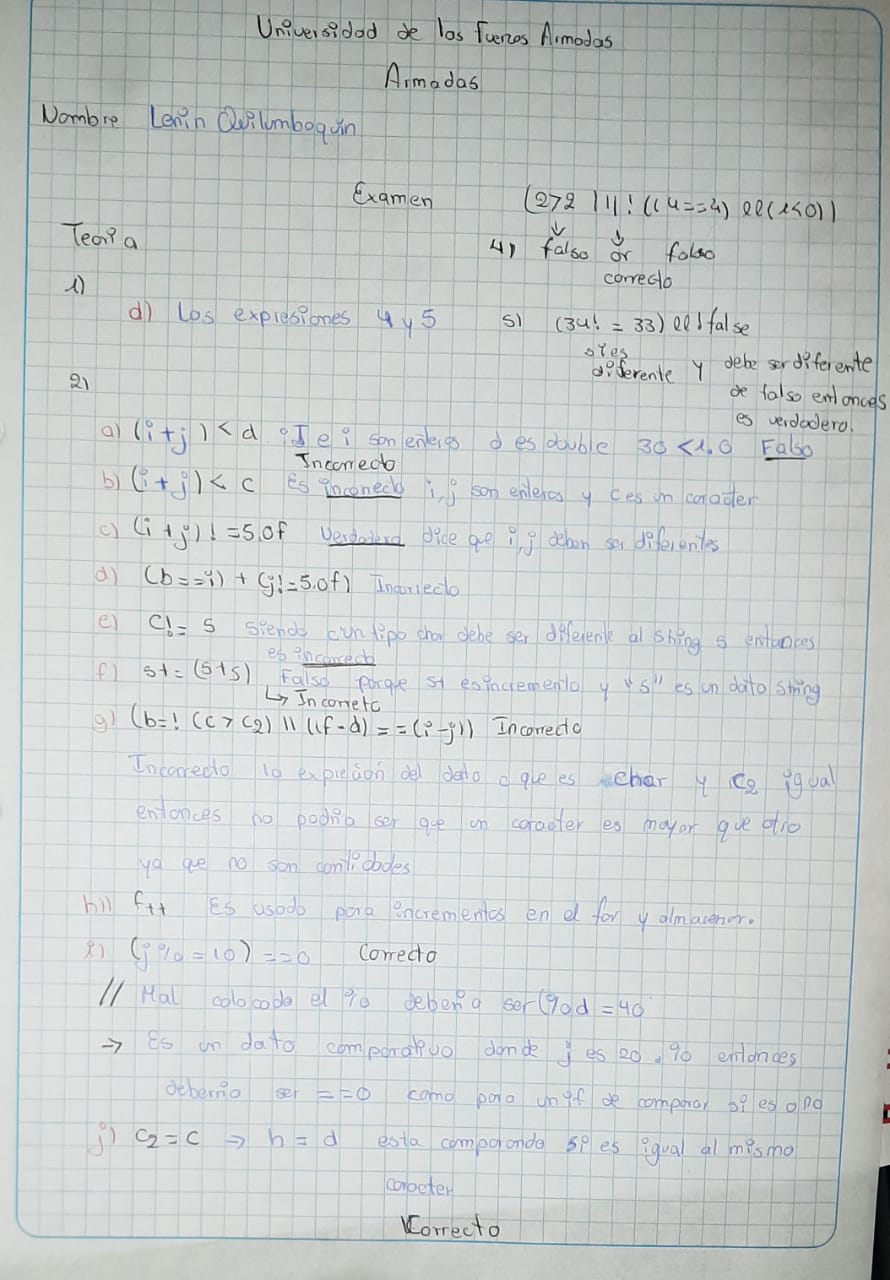 Universidad de las fuerzas Armadas
Armadas
Nombre Lenin Quilumbaquin
Examen (2>2 ||! ((4==4) && (1<0))
Teoria 4) falso or falso
correcto
1)
d) Las expresiones 4 y 5 5) (34! = 33) && ! false
si es
diferente y debe ser diferente
de falso entonces
es verdadero.
2)
a) (i+j) < d i J e i son enteros d es double 30 <1.0 Falso
Incorrecto
b) (i+j) < c Es incorrecto i,j son enteros y c es un caracter
c) (i+j)! =5.0f Verdadera dice que i,j deben ser diferentes
d) (b==i) + (j!=5.0f) Incorrecto
e) C!= s siendo c un tipo char debe ser diferente al string s entonces
es incorrecto
f) s+= (s+s) Falso porque s+ es incremento y "s" es un dato string
↳ Incorreto
g) (b=! (c > c2) || ((f-d) == (i-j)) Incorrecto
Incorrecto la expreción del dato c que es char y c2 igual
entonces no podria ser que un caracter es mayor que otro
ya que no son cantidades
h)) f++ Es usado para incrementos en el for y almacenar.
i) (j%=10)==0 Correcto
// Mal colocado el % deberia ser (%d =40
→ Es un dato comparativo donde j es 20, % entonces
deberrio ser ==0 como para un if de comparar si es o no
j) c2=c → h=d esta comparando si es igual al mismo
caracter
Correcto